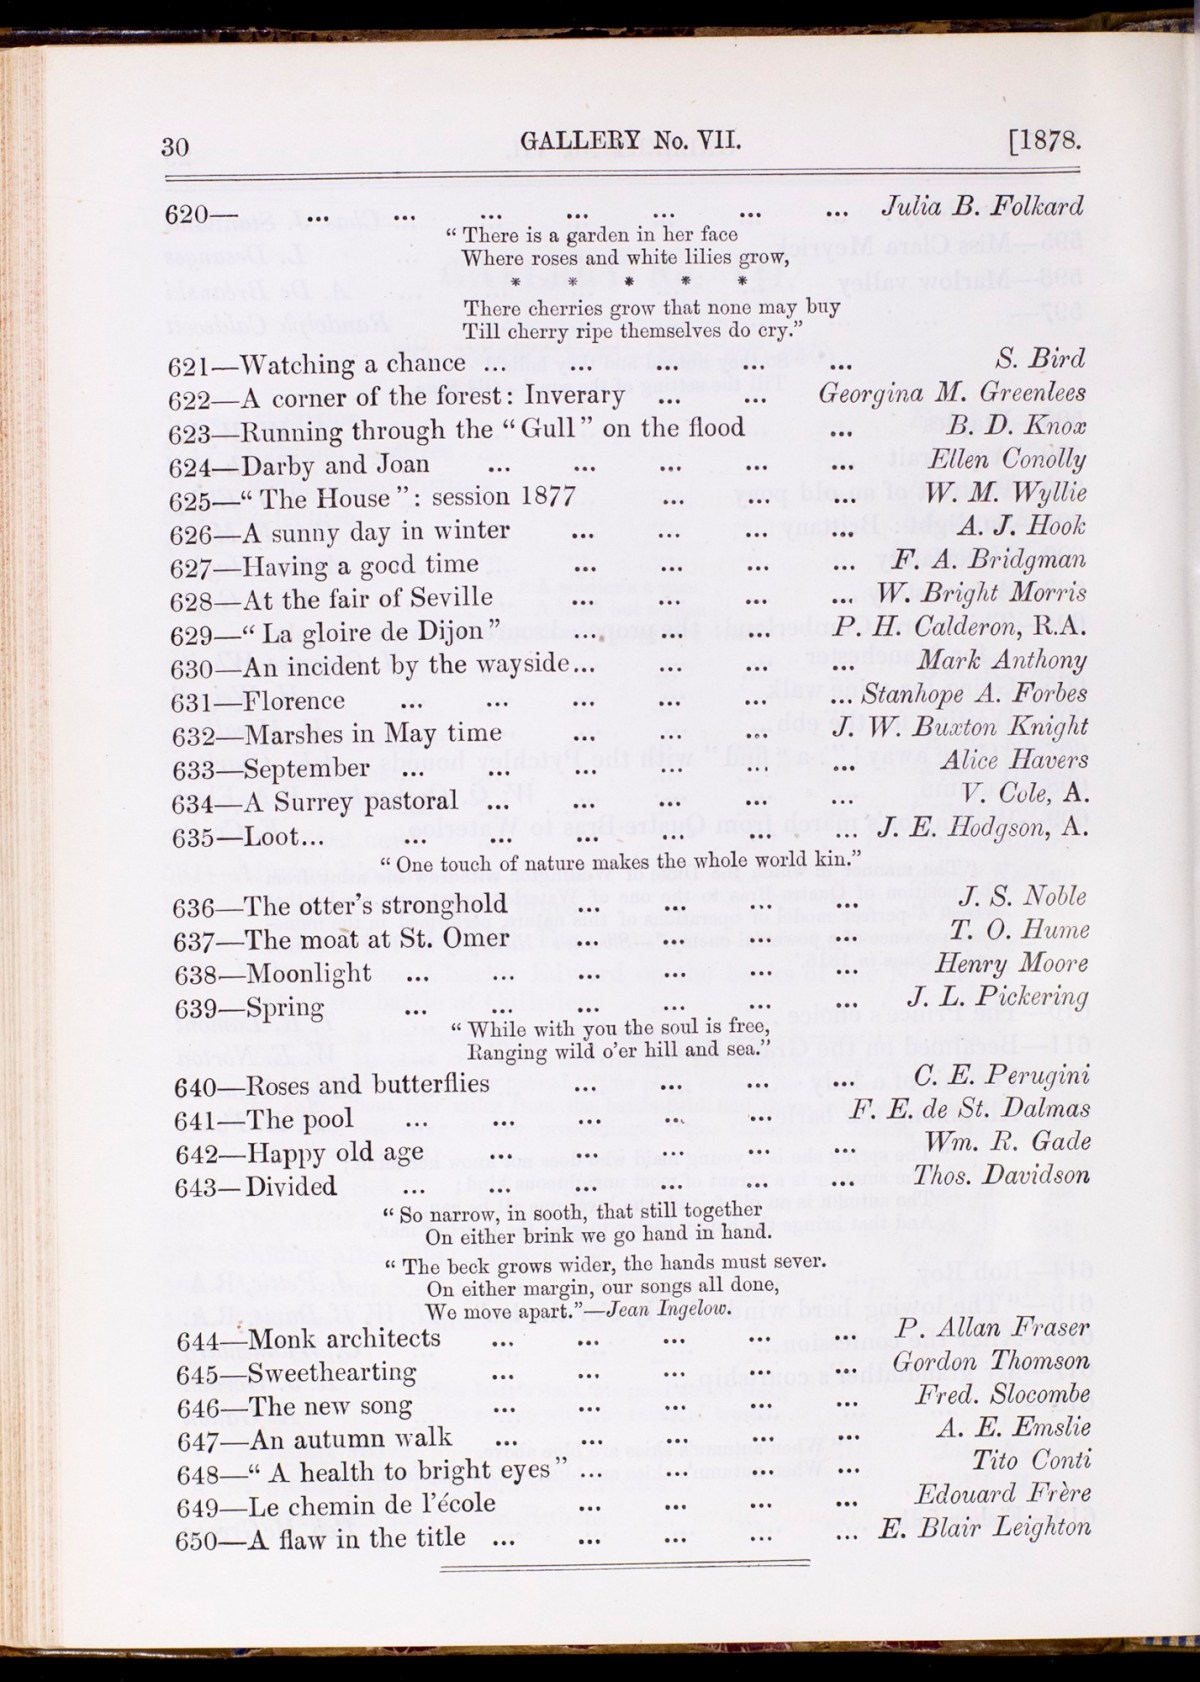 30 GALLERY No. VII. [1878.
620— ... ... ... ... ... ... ... Julia B. Folkard
“ There is a garden in her face
Where roses and white lilies grow,
* * * * *
There cherries grow that none may buy
Till cherry ripe themselves do cry.”
621—Watching a chance ... ... ... ... ... S. Bird
622—A corner of the forest: Inverary ... ... Georgina M. Greenlees
623—Running through the “ Gull ” on the flood ... B. D. Knox
624—Darby and Joan ... ... ... ... ... Ellen Conolly
625—“ The House ”: session 1877 ... ... ... W. M. Wyllie
626—A sunny day in winter ... ... ... ... A. J. Hook
627—Having a good time ... ... ... ... F. A. Bridgman
628—At the fair of Seville ... ... ... ... W. Bright Morris
629—“ La gloire de Dijon ” ... ... ... P. H. Calderon, R.A.
630—An incident by the wayside... ... ... Mark Anthony
631—Florence ... ... ... ... ... ... Stanhope A. Forbes
632—Marshes in May time ... ... ... J. W. Buxton Knight
633—September ... ... ... ... ... ... Alice Havers
634—A Surrey pastoral ... ... ... ... ... V. Cole, A.
635—Loot... ... ... ... ... ... ... J. E. Hodgson, A.
“ One touch of nature makes the whole world kin.”
636—The otter’s stronghold ... ... ... ... J. S. Noble
637—The moat at St. Omer ... ... ... ... T. O. Hume
638—Moonlight ... ... ... ... ... ... Henry Moore
639—Spring ... ... ... ... ... ... J. L. Pickering
“ While with you the soul is free,
Ranging wild o’er hill and sea.”
640—Roses and butterflies ... ... ... ... C. E. Perugini
641—The pool ... ... ... ... ... F. E. de St. Dalmas
642—Happy old age ... ... ... ... ... Wm. R. Gade
643—Divided ... ... ... ... ... ... Thos. Davidson
“ So narrow, in sooth, that still together
On either brink we go hand in hand.
“ The beck grows wider, the hands must sever.
On either margin, our songs all done,
We move apart.”—Jean Ingelow.
644—Monk architects ... ... ... ... ... P. Allan Fraser
645—Sweethearting ... ... ... ... ... Gordon Thomson
646—The new song ... ... ... ... ... Fred. Slocombe
647—An autumn walk ... ... ... ... ... A. E. Emslie
648—“ A health to bright eyes ” ... ... ... ... Tito Conti
649—Le chemin de l’école ... ... ... ... Edouard Frère
650—A flaw in the title ... ... ... ... ... E. Blair Leighton